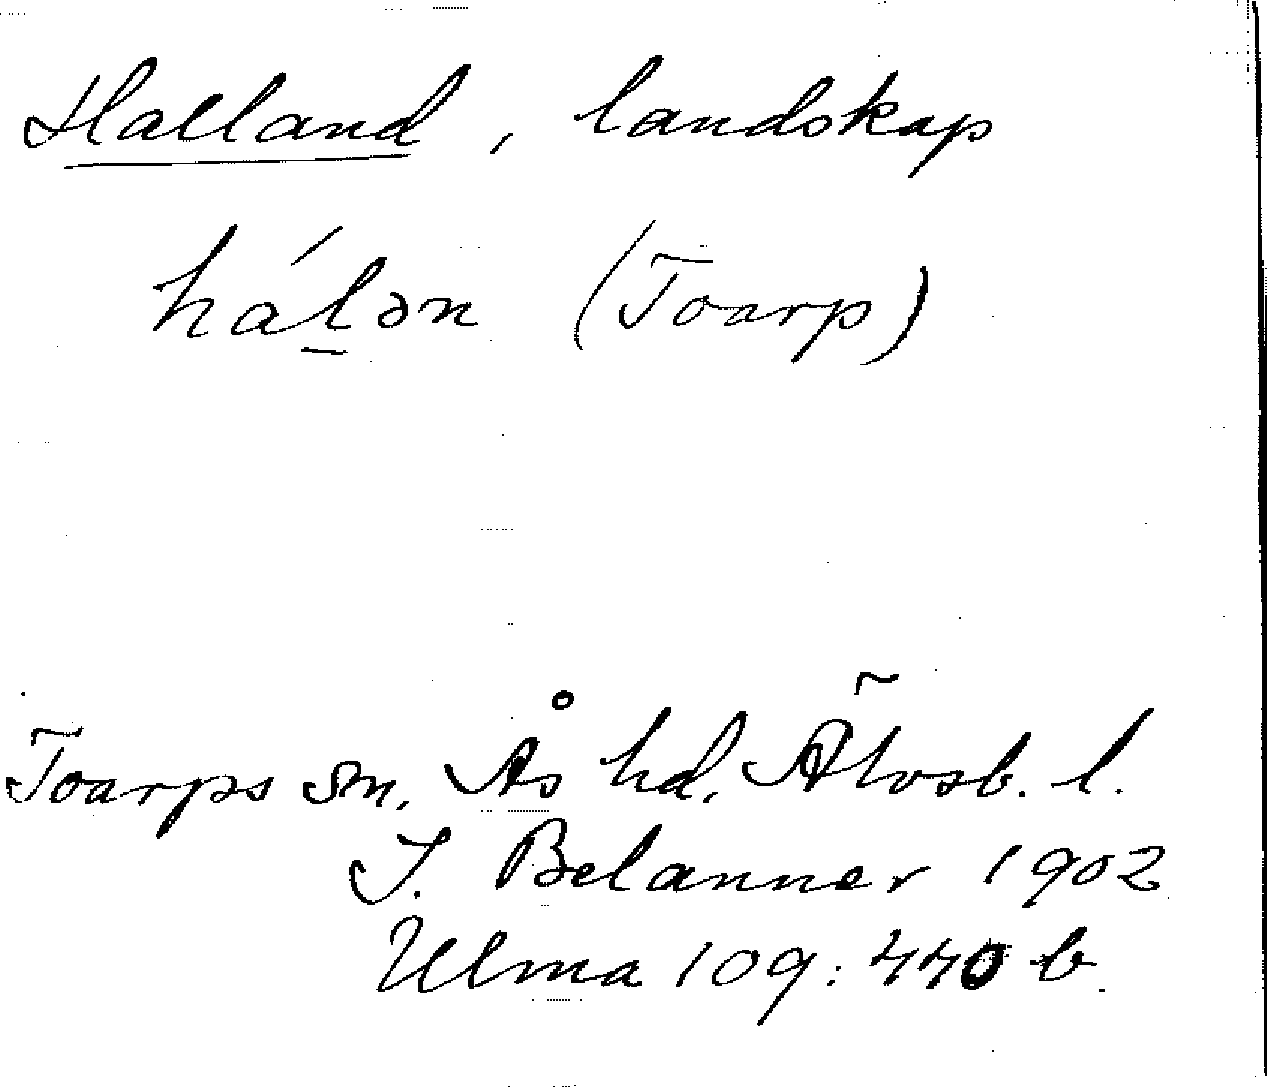 Halland, landskap
hál̠ən (Toarp)
Toarps sn, Ås hd, Älvsb. l.
J. Belanner 1902
Ulma 109:440 b.